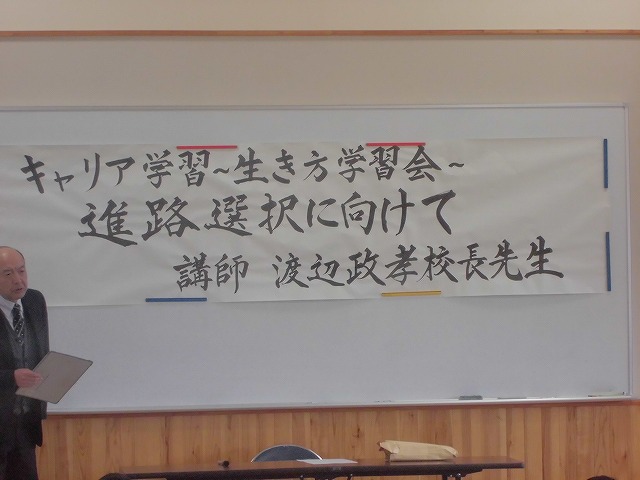 キャリア学習~生き方学習会~
進路選択に向けて
講師 渡辺政孝校長先生